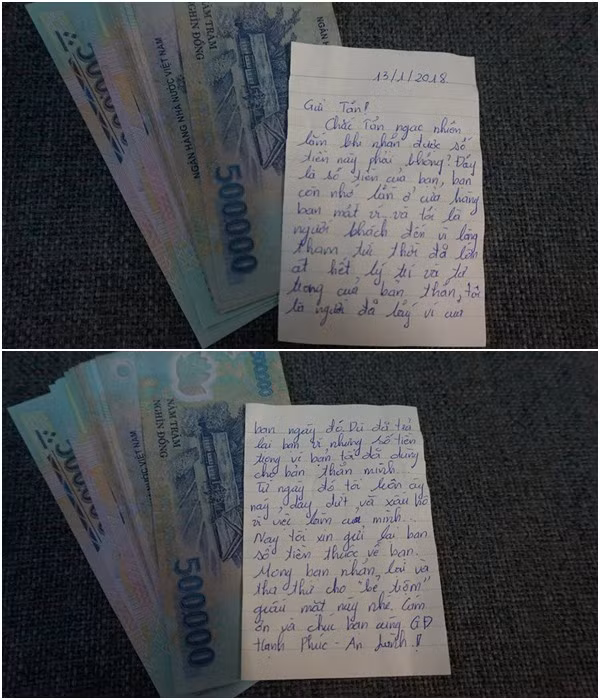 NGÂN HÀNG NHÀ NƯỚC VIỆT NAM
NĂM TRĂM
NGHÌN ĐỒNG
NGÂN HÀNG
500000
13/1/2018
Gửi Tấn!
Chắc Tấn ngạc nhiên
lắm khi nhận được số
tiền này phải không? Đây
là số tiền của bạn, bạn
còn nhớ lần ở cửa hàng
bạn mất ví, và tôi là
người khách đến vì lòng
tham tức thời đã lấn
át hết lý trí và tự
trọng của bản thân, tôi
là người đã lấy ví của
500000
NĂM TRĂM
NGHÌN ĐỒNG
NƯỚC VIỆT NAM
500000
bạn ngày đó. Dù đã trả
lại bạn ví nhưng số tiền
trong ví bạn tôi đã dùng
cho bản thân mình...
Từ ngày đó tôi luôn áy
náy, dây dứt, và xấu hổ
vì việc làm của mình...
Nay tôi xin gửi lại bạn
số tiền thuộc về bạn.
Mong bạn nhận lại và
tha thứ cho "kẻ trộm"
giấu mặt này nhé. Cám
ơn và chúc bạn cùng GĐ
Hạnh Phúc - An Lành.!